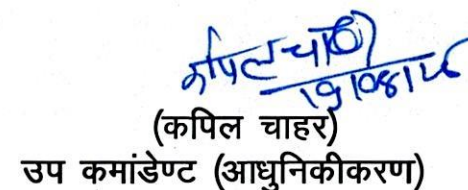 कपिल चाहर
(कपिल चाहर)
उप कमांडेण्ट (आधुनिकीकरण)